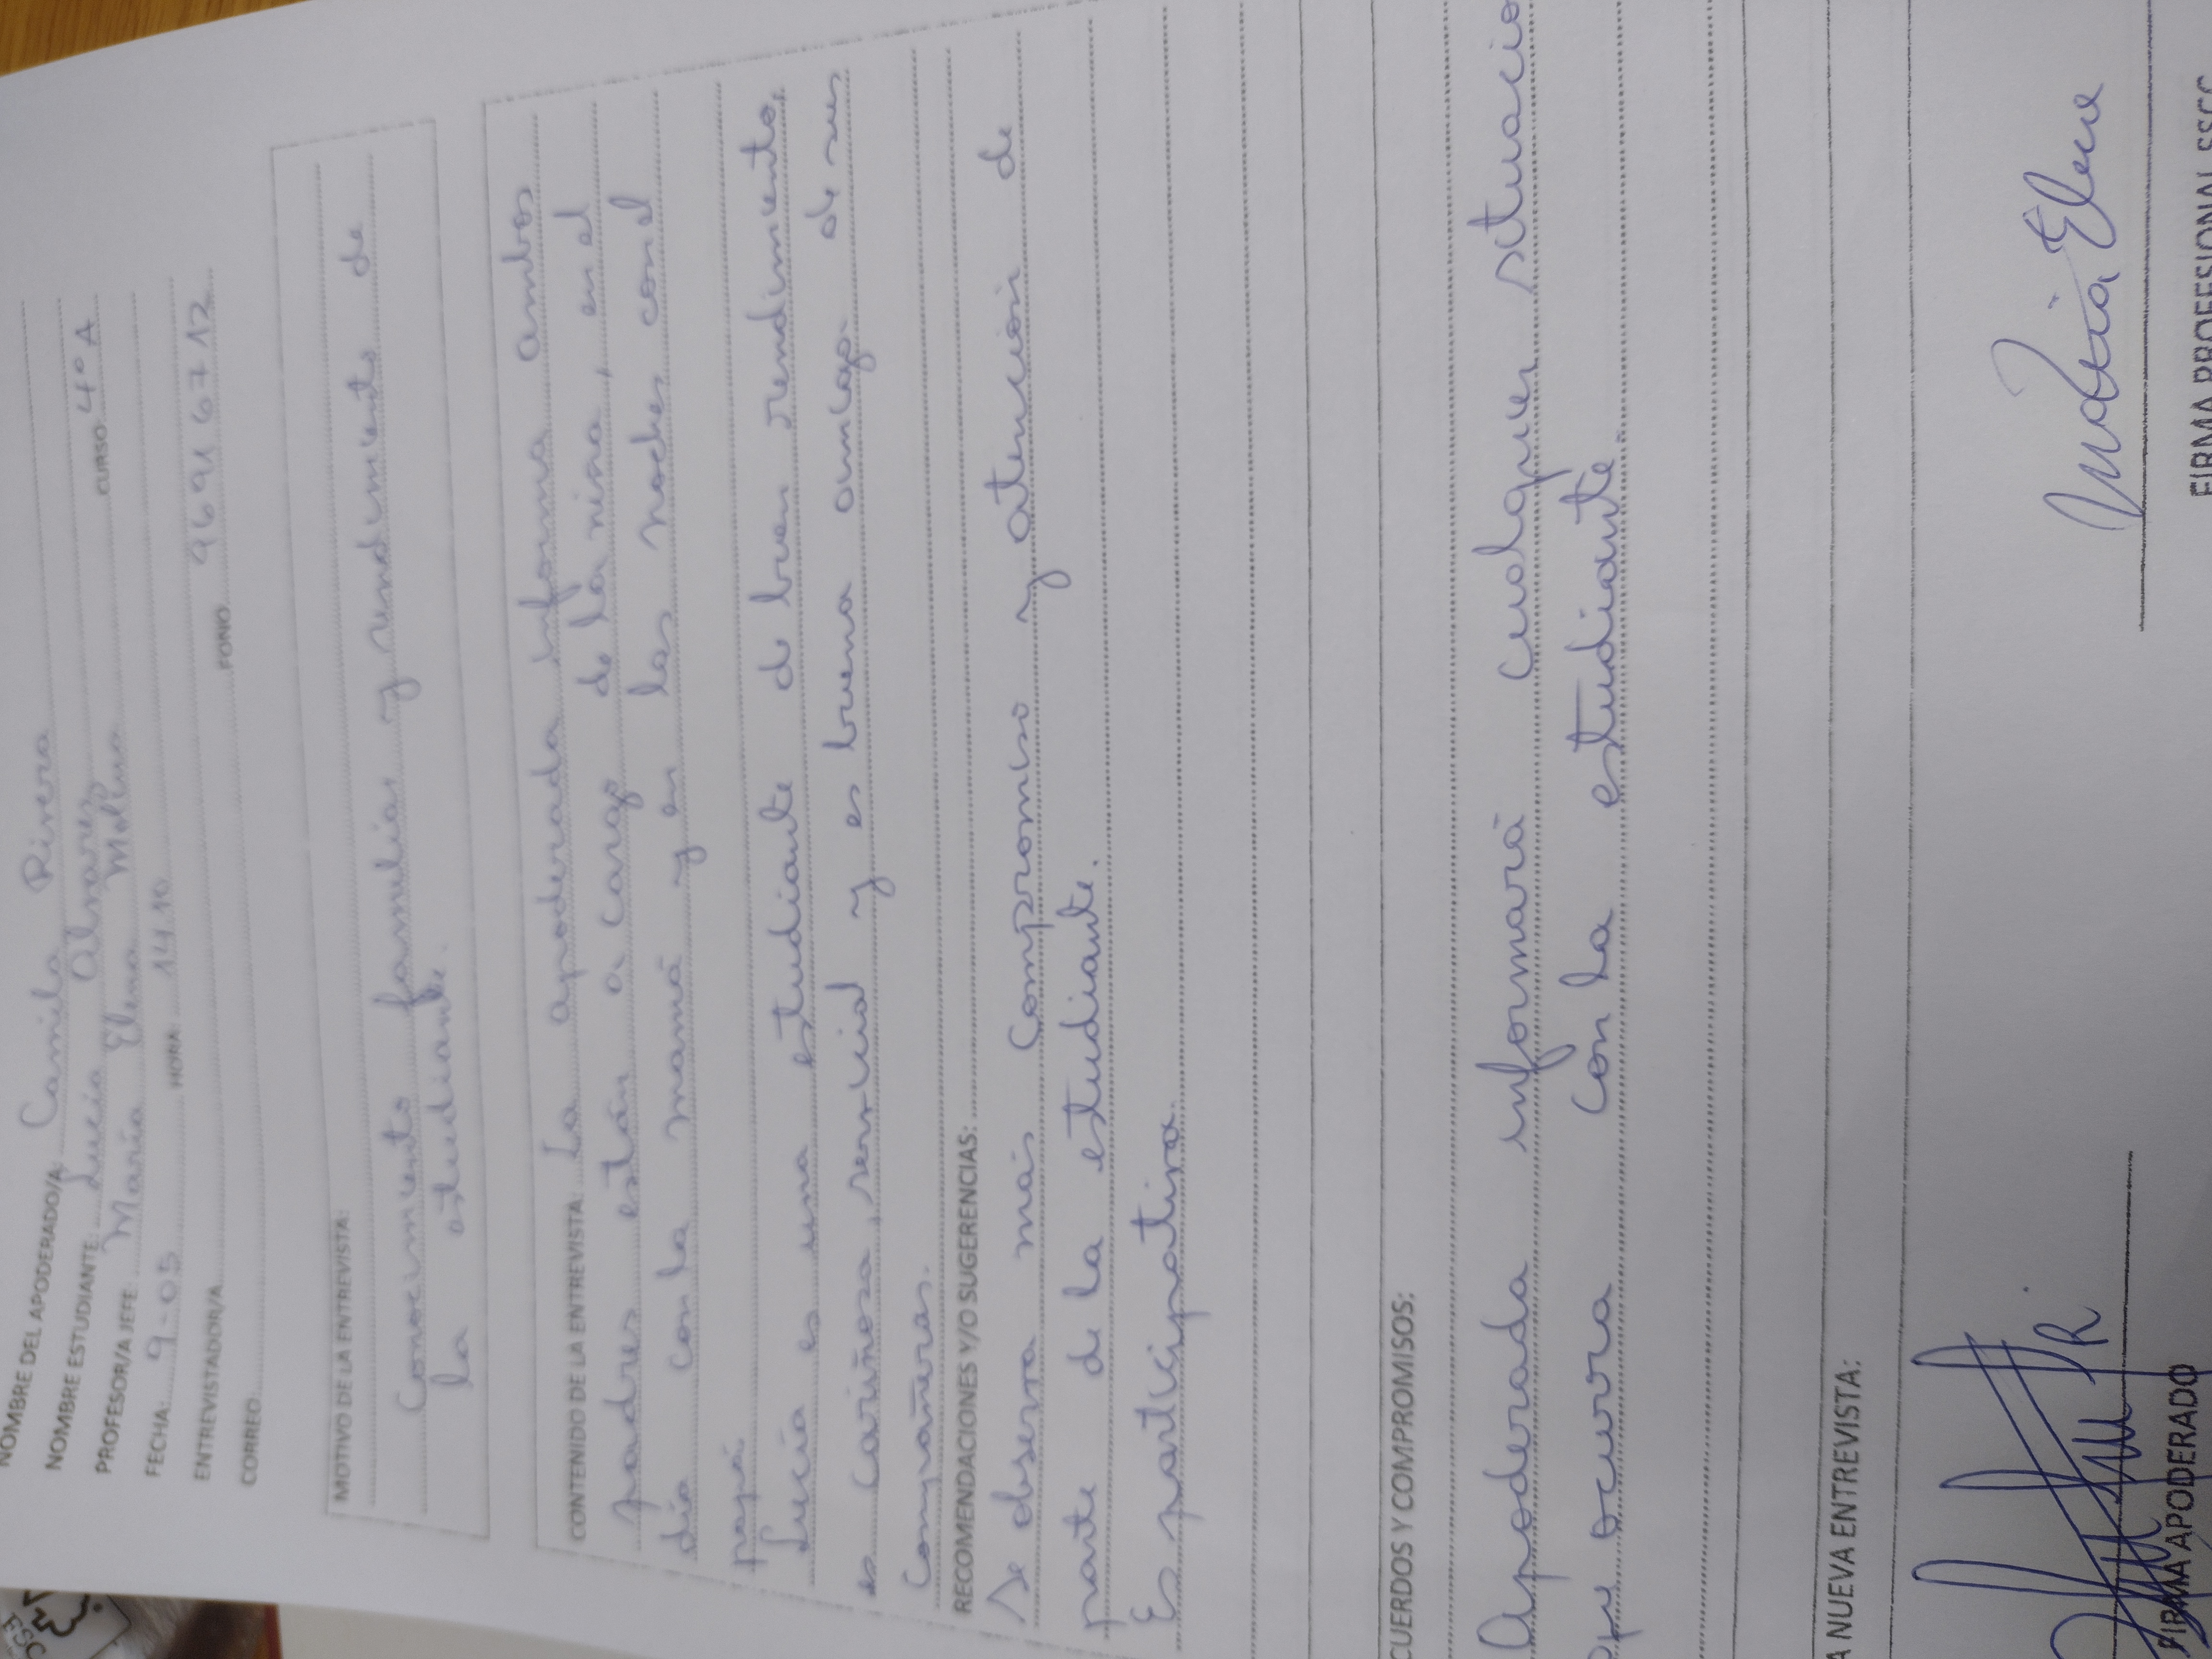 NOMBRE DEL APODERADO/A Camila Rivera
NOMBRE ESTUDIANTE: Lucía Alvarez CURSO: 4° A
PROFESOR/A JEFE: María Elena Molina
FECHA: 9-05 HORA: 14.10
ENTREVISTADOR/A FONO 96 91 67 12
CORREO
MOTIVO DE LA ENTREVISTA:
Conocimiento familiar y rendimiento de
la estudiante.
CONTENIDO DE LA ENTREVISTA La apoderada informa ambos
padres están a cargo de la niña, en el
día con la mamá y en las noches con el
papá.
Lucía es una estudiante de buen rendimiento,
es cariñosa, servicial y es buena amiga de sus
compañeras.
RECOMENDACIONES Y/O SUGERENCIAS:
Se observa más compromiso y atención de
parte de la estudiante.
Es participativa.
CUERDOS Y COMPROMISOS:
Apoderada informará cualquier situació
que ocurra con la estudiante.
A NUEVA ENTREVISTA:
María Elena
FIRMA APODERADO FIRMA PROFESIONAL SSCC